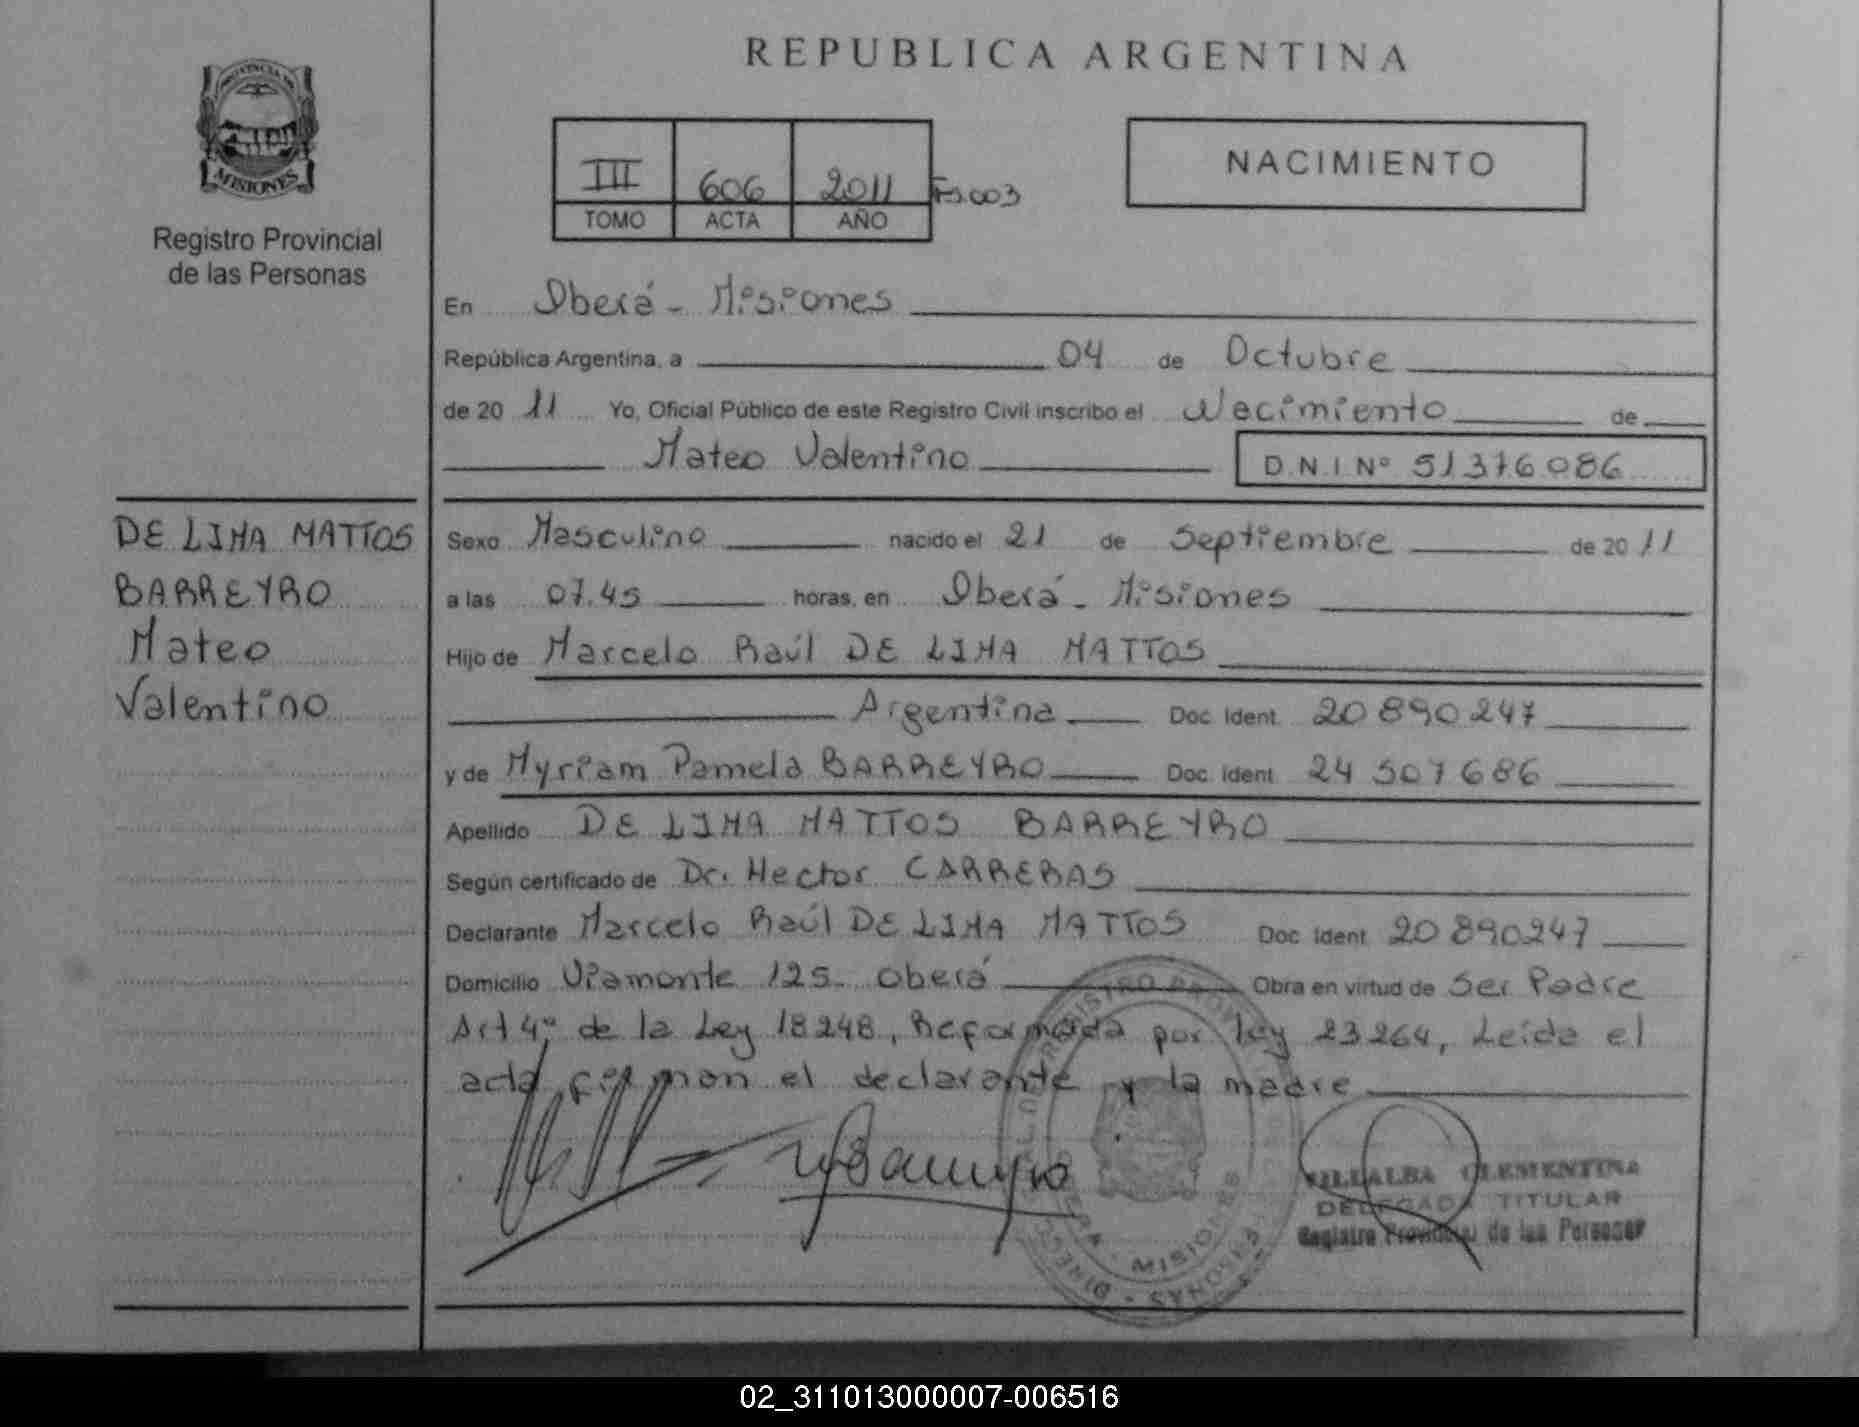 REPUBLICA ARGENTINA
PROVINCIA DE
MISIONES
Registro Provincial
de las Personas
III 606 2011 Fs.003
TOMO ACTA AÑO
NACIMIENTO
En Oberá - Misiones
República Argentina, a 04 de Octubre
de 20 11 Yo, Oficial Público de este Registro Civil inscribo el Nacimiento de
Mateo Valentino D.N.I Nº 51376086
DE LIMA MATTOS
BARREYRO
Mateo
Valentino
Sexo Masculino nacido el 21 de Septiembre de 20 11
a las 07.45 horas, en Oberá - Misiones
Hijo de Marcelo Raúl DE LIMA MATTOS
Argentina Doc. Ident. 20 890 247
y de Myriam Pamela BARREYRO Doc. Ident. 24 507 686
Apellido DE LIMA MATTOS BARREYRO
Según certificado de Dr. Hector CARRERAS
Declarante Marcelo Raúl DE LIMA MATTOS Doc. Ident. 20 890247
Domicilio Viamonte 125. Oberá Obra en virtud de Ser Padre
Art 4º de la Ley 18248, Reformada por ley 23264, Leída el
acta firman el declarante y la madre
VILLALBA CLEMENTINA
DELEGADA TITULAR
Registro Provincial de las Personas
MISIONES
02_311013000007-006516